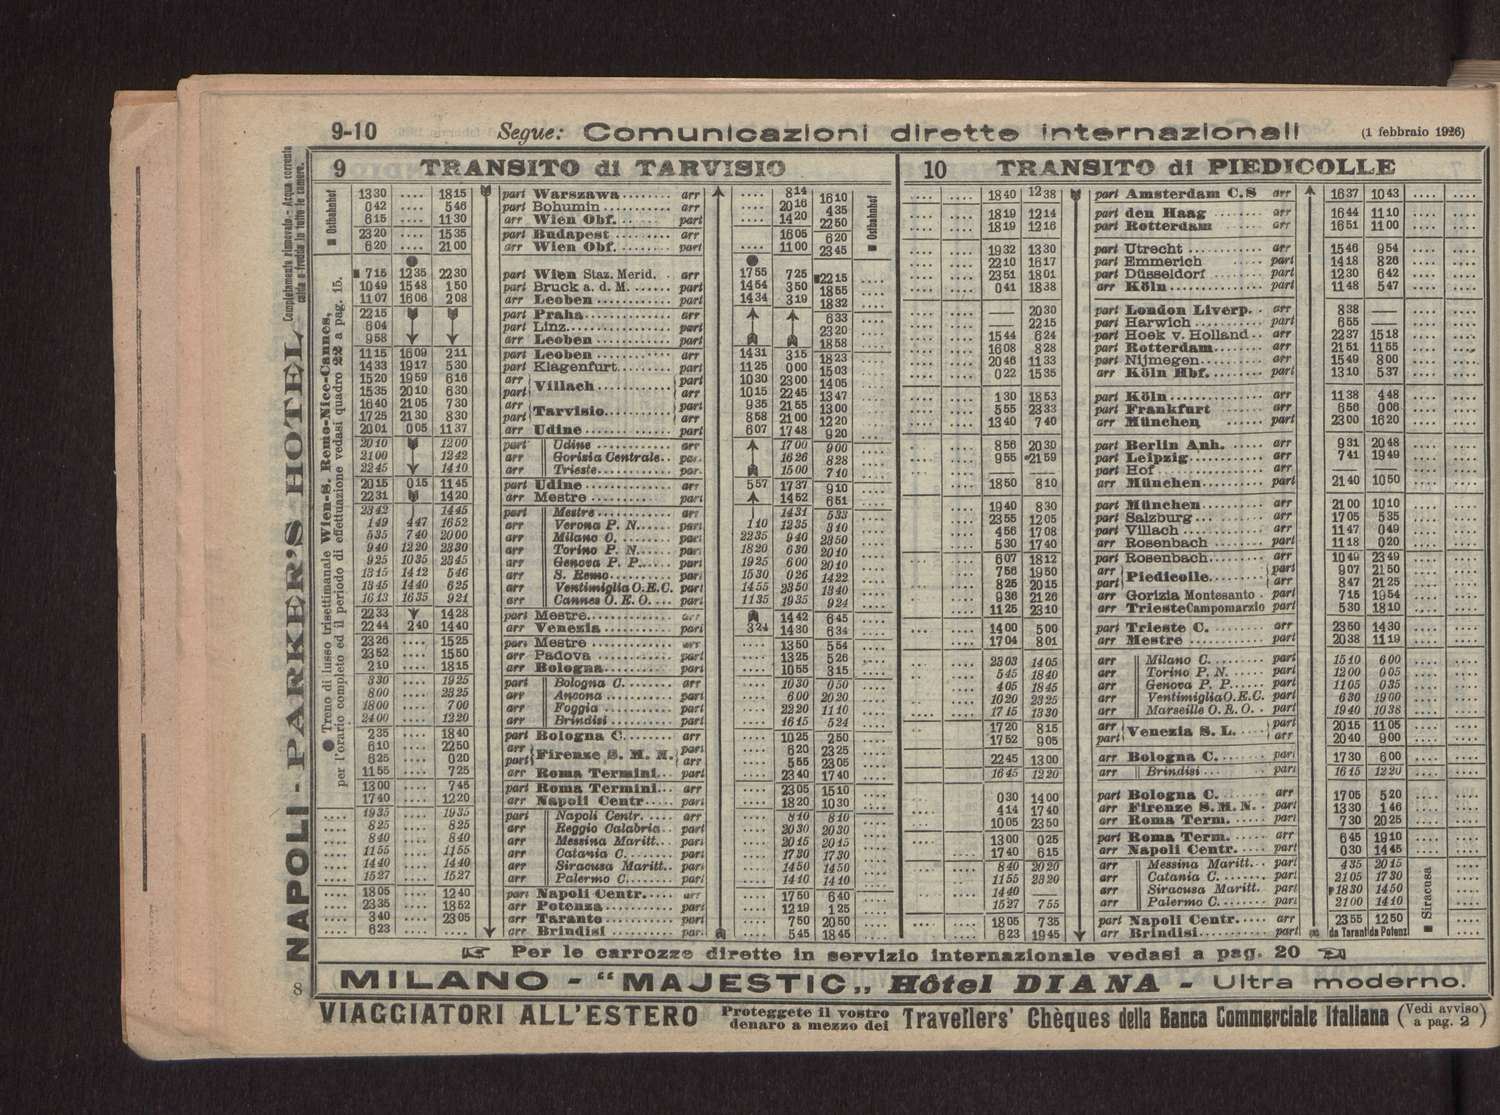 9-10 Segue: Comunicazioni dirette internazionali (1 febbraio 1926)
NAPOLI - PARKER'S HOTEL Completamente rimovato.- Acqua corrente
calda e fredda in tutte le camere.
● Treno di lusso trisettimanale Wien-S. Remo-Nice-Cannes,
per l'orario completo ed il periodo di effettuazione vedasi quadro 22 a pag. 15.
■ Ostbahnhof
9 TRANSITO di TARVISIO
1330 .... 1815 part Warszawa ........ arr .... 814 1610
042 .... 546 part Bohumin ........ arr .... 2016 435
615 .... 1130 arr Wien Obf. ... part 1420 2250
2320 .... 1535 part Budapest ...... arr 1605 620
620 .... 2100 arr Wien Obf. ...... part .... 1100 2345
■ Ostbahnhof
■ 715 1235 2230 part Wien Staz. Merid. . arr 1755 725 ■2215 ....
1049 1548 150 part Bruck a. d. M. ...... part 1454 350 1855 ....
1107 1606 208 arr Leoben ............ part 1434 319 1832 ....
2215 part Praha ............ arr 633
604 part Linz ............ part 2320
958 arr Leoben ............ part 1858
1115 1609 211 part Leoben ............ arr 1431 315 1823 ....
1433 1917 530 part Klagenfurt ........ part 1125 000 1503 ....
1520 1959 616 arr Villach part 1030 2300 1405 ....
1535 2010 630 part arr 1015 2245 1347 ....
1640 2105 730 arr Tarvisio part 935 2155 1300 ....
1725 2130 830 part arr 858 2100 1220 ....
2001 005 1137 arr Udine ............ part 607 1748 920 ....
2010 1200 part Udine ............ arr 1700 900 ....
2100 1242 arr Gorizia Centrale .. par. 1626 828 ....
2245 1410 arr Trieste ............ par. 1500 710 ....
2015 015 1145 part Udine ............ arr 557 1737 910 ....
2231 1420 arr Mestre ............ part 1452 651 ....
2342 1445 part Mestre ............ arr 1431 533 ....
149 447 1652 arr Verona P. N. ...... par. 110 1235 310 ....
535 740 2000 arr Milano C. ......... par. 2235 940 2350 ....
940 1220 2330 arr Torino P. N. ...... par. 1820 630 2010 ....
925 1035 2345 arr Genova P. P. ...... par. 1925 600 2010 ....
1315 1412 546 arr S. Remo ........... par. 1530 026 1422 ....
1345 1440 625 arr Ventimiglia O.E.C. par. 1455 2350 1340 ....
1613 1635 921 arr Cannes O. E. O. ... par. 1135 1935 924 ....
2233 1428 part Mestre ............ arr 1442 645 ....
2244 240 1440 arr Venezia ............ part 324 1430 634 ....
2326 .... 1525 part Mestre ............ arr 1350 554 ....
2352 .... 1550 arr Padova ............ part 1325 526 ....
210 .... 1815 arr Bologna ............ part 1055 315 ....
330 .... 1925 part Bologna C. ........ arr .... 1030 050 ....
800 .... 2325 arr Ancona ............ part .... 600 2020 ....
1800 .... 700 arr Foggia ............ part .... 2220 1110 ....
2400 .... 1220 arr Brindisi .......... part .... 1615 524 ....
235 .... 1840 part Bologna C. ........ arr .... 1025 250 ....
610 .... 2250 arr Firenze S. M. N. part .... 620 2325 ....
625 .... 020 part arr .... 555 2305 ....
1155 .... 725 arr Roma Termini ... part .... 2340 1740 ....
1300 .... 745 part Roma Termini ... arr .... 2305 1510 ....
1740 .... 1220 arr Napoli Centr ..... part .... 1820 1030 ....
.... 1935 .... 1935 part Napoli Centr. .... arr .... 810 810 ....
.... 825 .... 825 arr Reggio Calabria .. part .... 2030 2030 ....
.... 840 .... 840 arr Messina Maritt. .. part .... 2015 2015 ....
.... 1155 .... 1155 arr Catania C. ....... part .... 1730 1730 ....
.... 1440 .... 1440 arr Siracusa Maritt. .. part .... 1450 1450 ....
.... 1527 .... 1527 arr Palermo C. ....... part .... 1410 1410 ....
.... 1805 .... 1240 part Napoli Centr. .... arr .... 1750 640 ....
.... 2335 .... 1852 arr Potenza ............ part .... 1219 125 ....
.... 340 .... 2305 arr Taranto ............ part .... 750 2050 ....
.... 623 .... .... arr Brindisi ............ part .... 545 1845 ....
10 TRANSITO di PIEDICOLLE
.... .... 1840 1238 part Amsterdam C.S arr 1637 1043 .... ....
.... .... 1819 1214 part den Haag ........ arr 1644 1110 .... ....
.... .... 1819 1216 part Rotterdam ....... arr 1651 1100 .... ....
.... .... 1932 1330 part Utrecht ......... arr 1546 954 .... ....
.... .... 2210 1617 part Emmerich ........ part 1418 826 .... ....
.... .... 2351 1801 part Düsseldorf ...... part 1230 642 .... ....
.... .... 041 1838 arr Köln ............ part 1148 547 .... ....
.... .... — 2030 part London Liverp. . arr 838 — .... ....
.... .... — 2215 part Harwich ......... part 655 — .... ....
.... .... 1544 624 part Hoek v. Holland .. arr 2237 1518 .... ....
.... .... 1608 828 part Rotterdam ....... arr 2151 1155 .... ....
.... .... 2046 1133 part Nijmegen ........ arr 1549 800 .... ....
.... .... 022 1535 arr Köln Hbf. ....... part 1310 537 .... ....
.... .... 130 1853 part Köln ............ arr 1138 448 .... ....
.... .... 555 2333 part Frankfurt arr 656 006 .... ....
.... .... 1340 740 arr München ......... part 2300 1620 .... ....
.... .... 856 2030 part Berlin Anh. ..... arr 931 2048 .... ....
.... .... 955 2159 part Leipzig ......... arr 741 1949 .... ....
.... .... — — part Hof ............. arr — — .... ....
.... .... 1850 810 arr München ......... part 2140 1050 .... ....
.... .... 1940 830 part München ......... arr 2100 1010 .... ....
.... .... 2355 1205 part Salzburg ........ part 1705 535 .... ....
.... .... 456 1708 part Villach ......... part 1147 049 .... ....
.... .... 530 1740 arr Rosenbach ....... part 1118 020 .... ....
.... .... 607 1812 part Rosenbach ....... arr 1049 2349 .... ....
.... .... 756 1950 arr Piedicolle part 907 2150 .... ....
.... .... 825 2015 part arr 847 2125 .... ....
.... .... 936 2126 arr Gorizia Montesanto . part 715 1954 .... ....
.... .... 1125 2310 arr Trieste Campomarzio part 530 1810 .... ....
... .... 1400 500 part Trieste C. ....... arr 2350 1430 .... ....
... .... 1704 801 arr Mestre .......... part 2038 1119 .... ....
.. .... 2303 1405 arr Milano C. ........ part 1510 600 .... ....
.. .... 545 1840 arr Torino P. N. ..... part 1200 005 .... ....
.. .... 405 1845 arr Genova P. P. ..... part 1105 035 .... ....
.. .... 1020 2325 arr Ventimiglia O.E.C. part 630 1900 .... ....
... .... 1715 1330 arr Marseille O. E. O. . part 1940 1038 .... ....
... .... 1720 815 arr Venezia S. L. part 2015 1105 .... ....
... .... 1752 905 part arr 2040 900 .... ....
... .... 2245 1300 arr Bologna C. ...... part 1730 600 .... ....
.... .... 1645 1220 arr Brindisi ........ part 1615 1220 .... ....
.... .... 030 1400 part Bologna C. ...... arr 1705 520 .... ....
.... .... 414 1740 arr Firenze S. M. N. . part 1330 146 .... ....
.... .... 1005 2350 arr Roma Term. ...... part 730 2025 .... ....
.... .... 1300 025 part Roma Term. ...... arr 645 1910 .... ....
.... .... 1740 615 arr Napoli Centr. .... part 030 1445 .... ....
.... .... 840 2020 arr Messina Maritt. .. part 435 2015 ....
.... .... 1155 2320 arr Catania C. ....... part 2105 1730 ....
.... .... 1440 arr Siracusa Maritt. . part 1830 1450 ....
.... .... 1527 755 arr Palermo C. ....... part 2100 1410 ....
■ Siracusa
.... .... 1805 735 part Napoli Centr. .... arr 2355 1250 ....
.... .... 623 1945 arr Brindisi ......... part da Tarant da Potenz ....
Per le carrozze dirette in servizio internazionale vedasi a pag. 20
8
MILANO - "MAJESTIC„ Hôtel DIANA - Ultra moderno.
VIAGGIATORI ALL'ESTERO Proteggete il vostro
denaro a mezzo dei Travellers' Chèques della Banca Commerciale Italiana (Vedi avviso
a pag. 2)